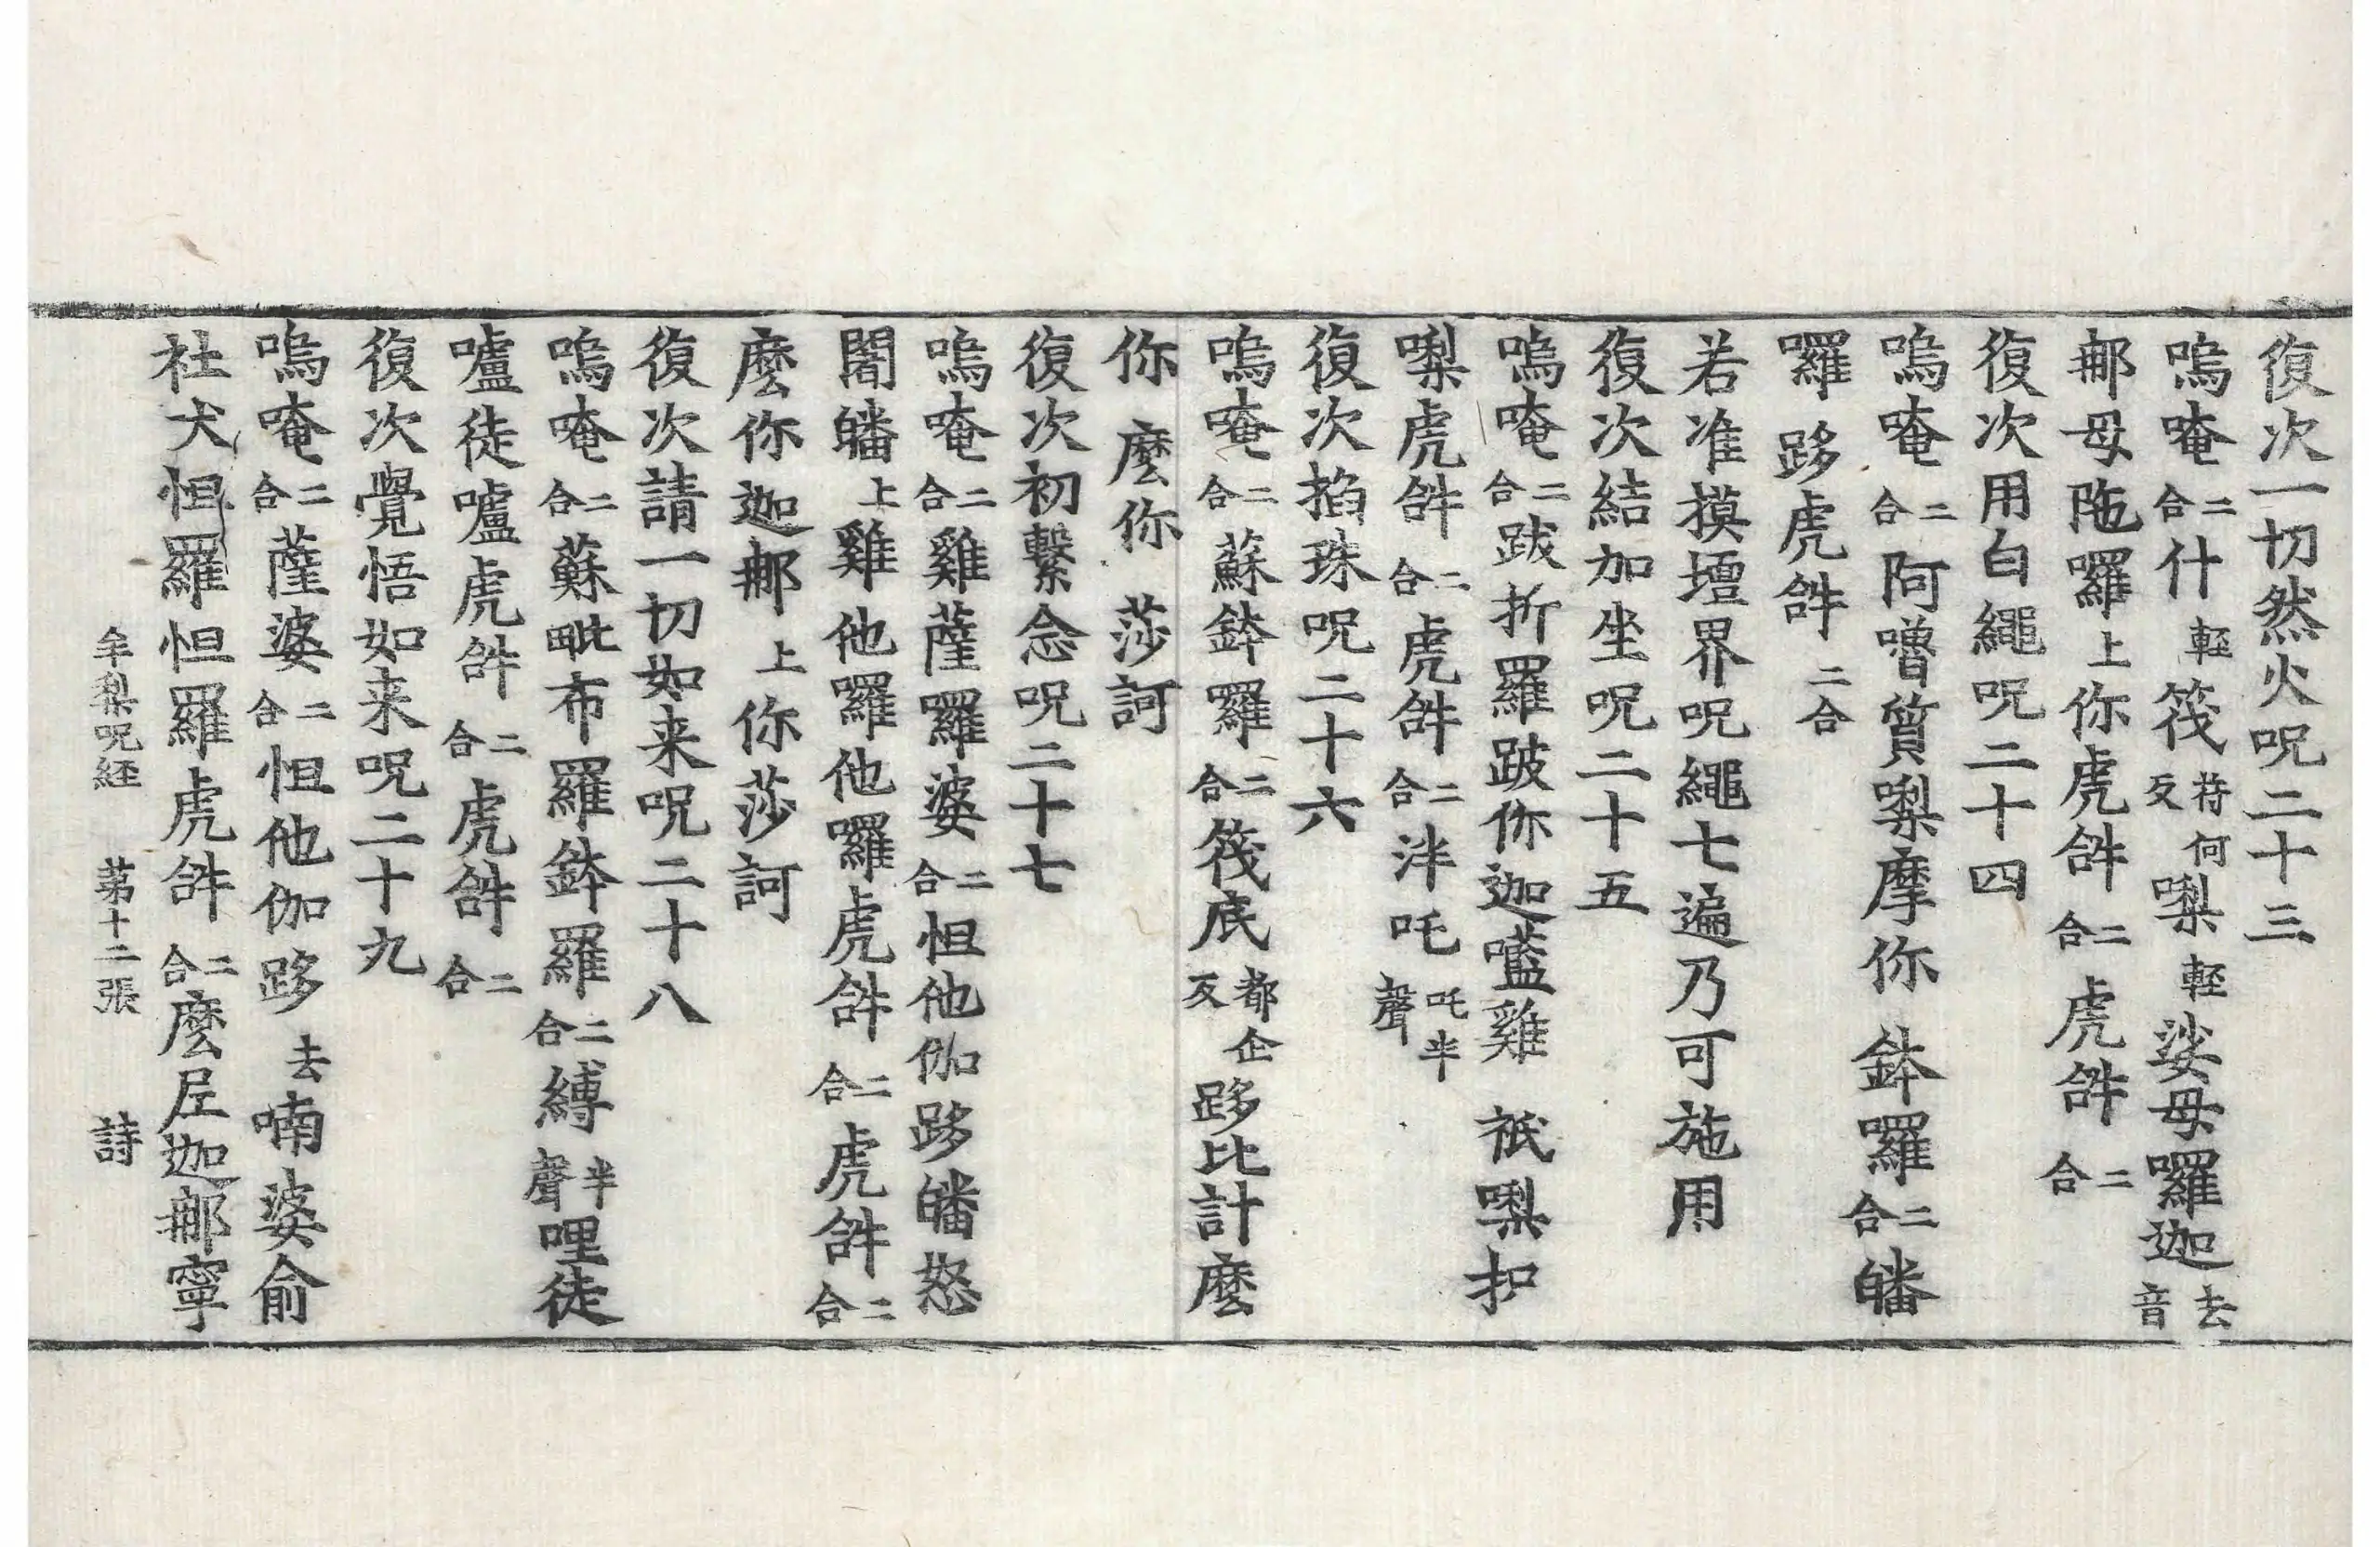 復次一切然火呪二十三
嗚唵二合什輕筏苻何反㗚輕娑母囉迦去音
那母陁囉上你虎𤙖二合虎𤙖二合
復次用白繩呪二十四
嗚唵二合阿嚕質㗚摩你鉢囉二合皤
囉跢虎𤙖二合
若准摸壇界呪繩七遍乃可施用
復次結加坐呪二十五
嗚唵二合跋折羅跛你迦𡄇雞祇㗚扣
㗚虎𤙖二合虎𤙖二合泮吒吒半聲
復次掐珠呪二十六
嗚唵二合蘇鉢囉二合筏底都企反跢比計麽
你麽你莎訶
復次初繫念呪二十七
嗚唵二合雞薩囉婆二合怛他伽跢皤怒
闇皤上雞他囉他囉虎𤙖二合虎𤙖二合
麽你迦那上你莎訶
復次請一切如来呪二十八
嗚唵二合蘇毗布羅鉢羅二合縛半聲哩徒
嚧徒嚧虎𤙖二合虎𤙖二合
復次覺悟如来呪二十九
嗚唵二合薩婆二合怛他伽跢去喃婆俞
社犬怛羅怛羅虎𤙖二合麽𡰱迦那寧
牟梨呪経 苐十二張 詩